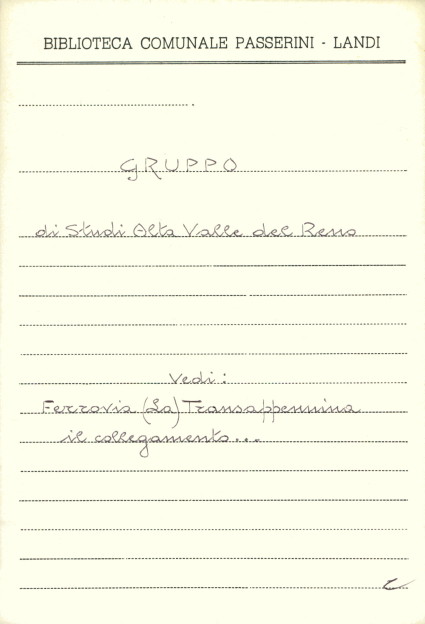 BIBLIOTECA COMUNALE PASSERINI - LANDI
GRUPPO
di Studi Alta Valle del Reno
Vedi:
Ferrovia (La) Transappennina
il collegamento...